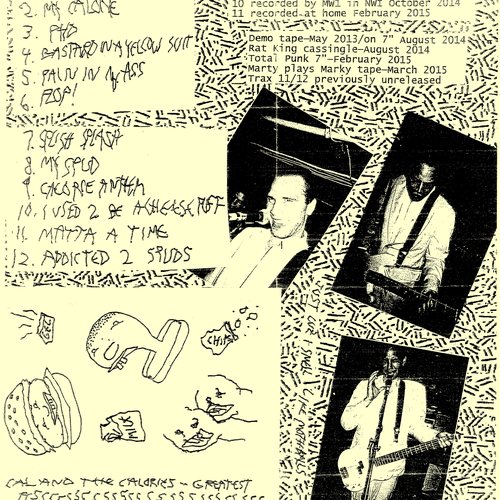 2. MR CALORIE
3. PHD
4. BASTARD IN A YELLOW SUIT
5. PAIN IN MY ASS
6. POP!
7. SPLISH SPLASH
8. MR SPUD
9. CALORIE ANTHEM
10. I USED 2 BE A CHEESE PUFF
11. MATTA A TIME
12. ADDICTED 2 SPUDS
10 recorded by MW1 in NWI October 2014
11 recorded at home February 2015
Demo tape-May 2013/on 7" August 2014
Rat King cassingle-August 2014
Total Punk 7"-February 2015
Marty plays Marky tape-March 2015
Trax 11/12 previously unreleased
CHIPS
CAL AND THE CALORIES - GREATEST